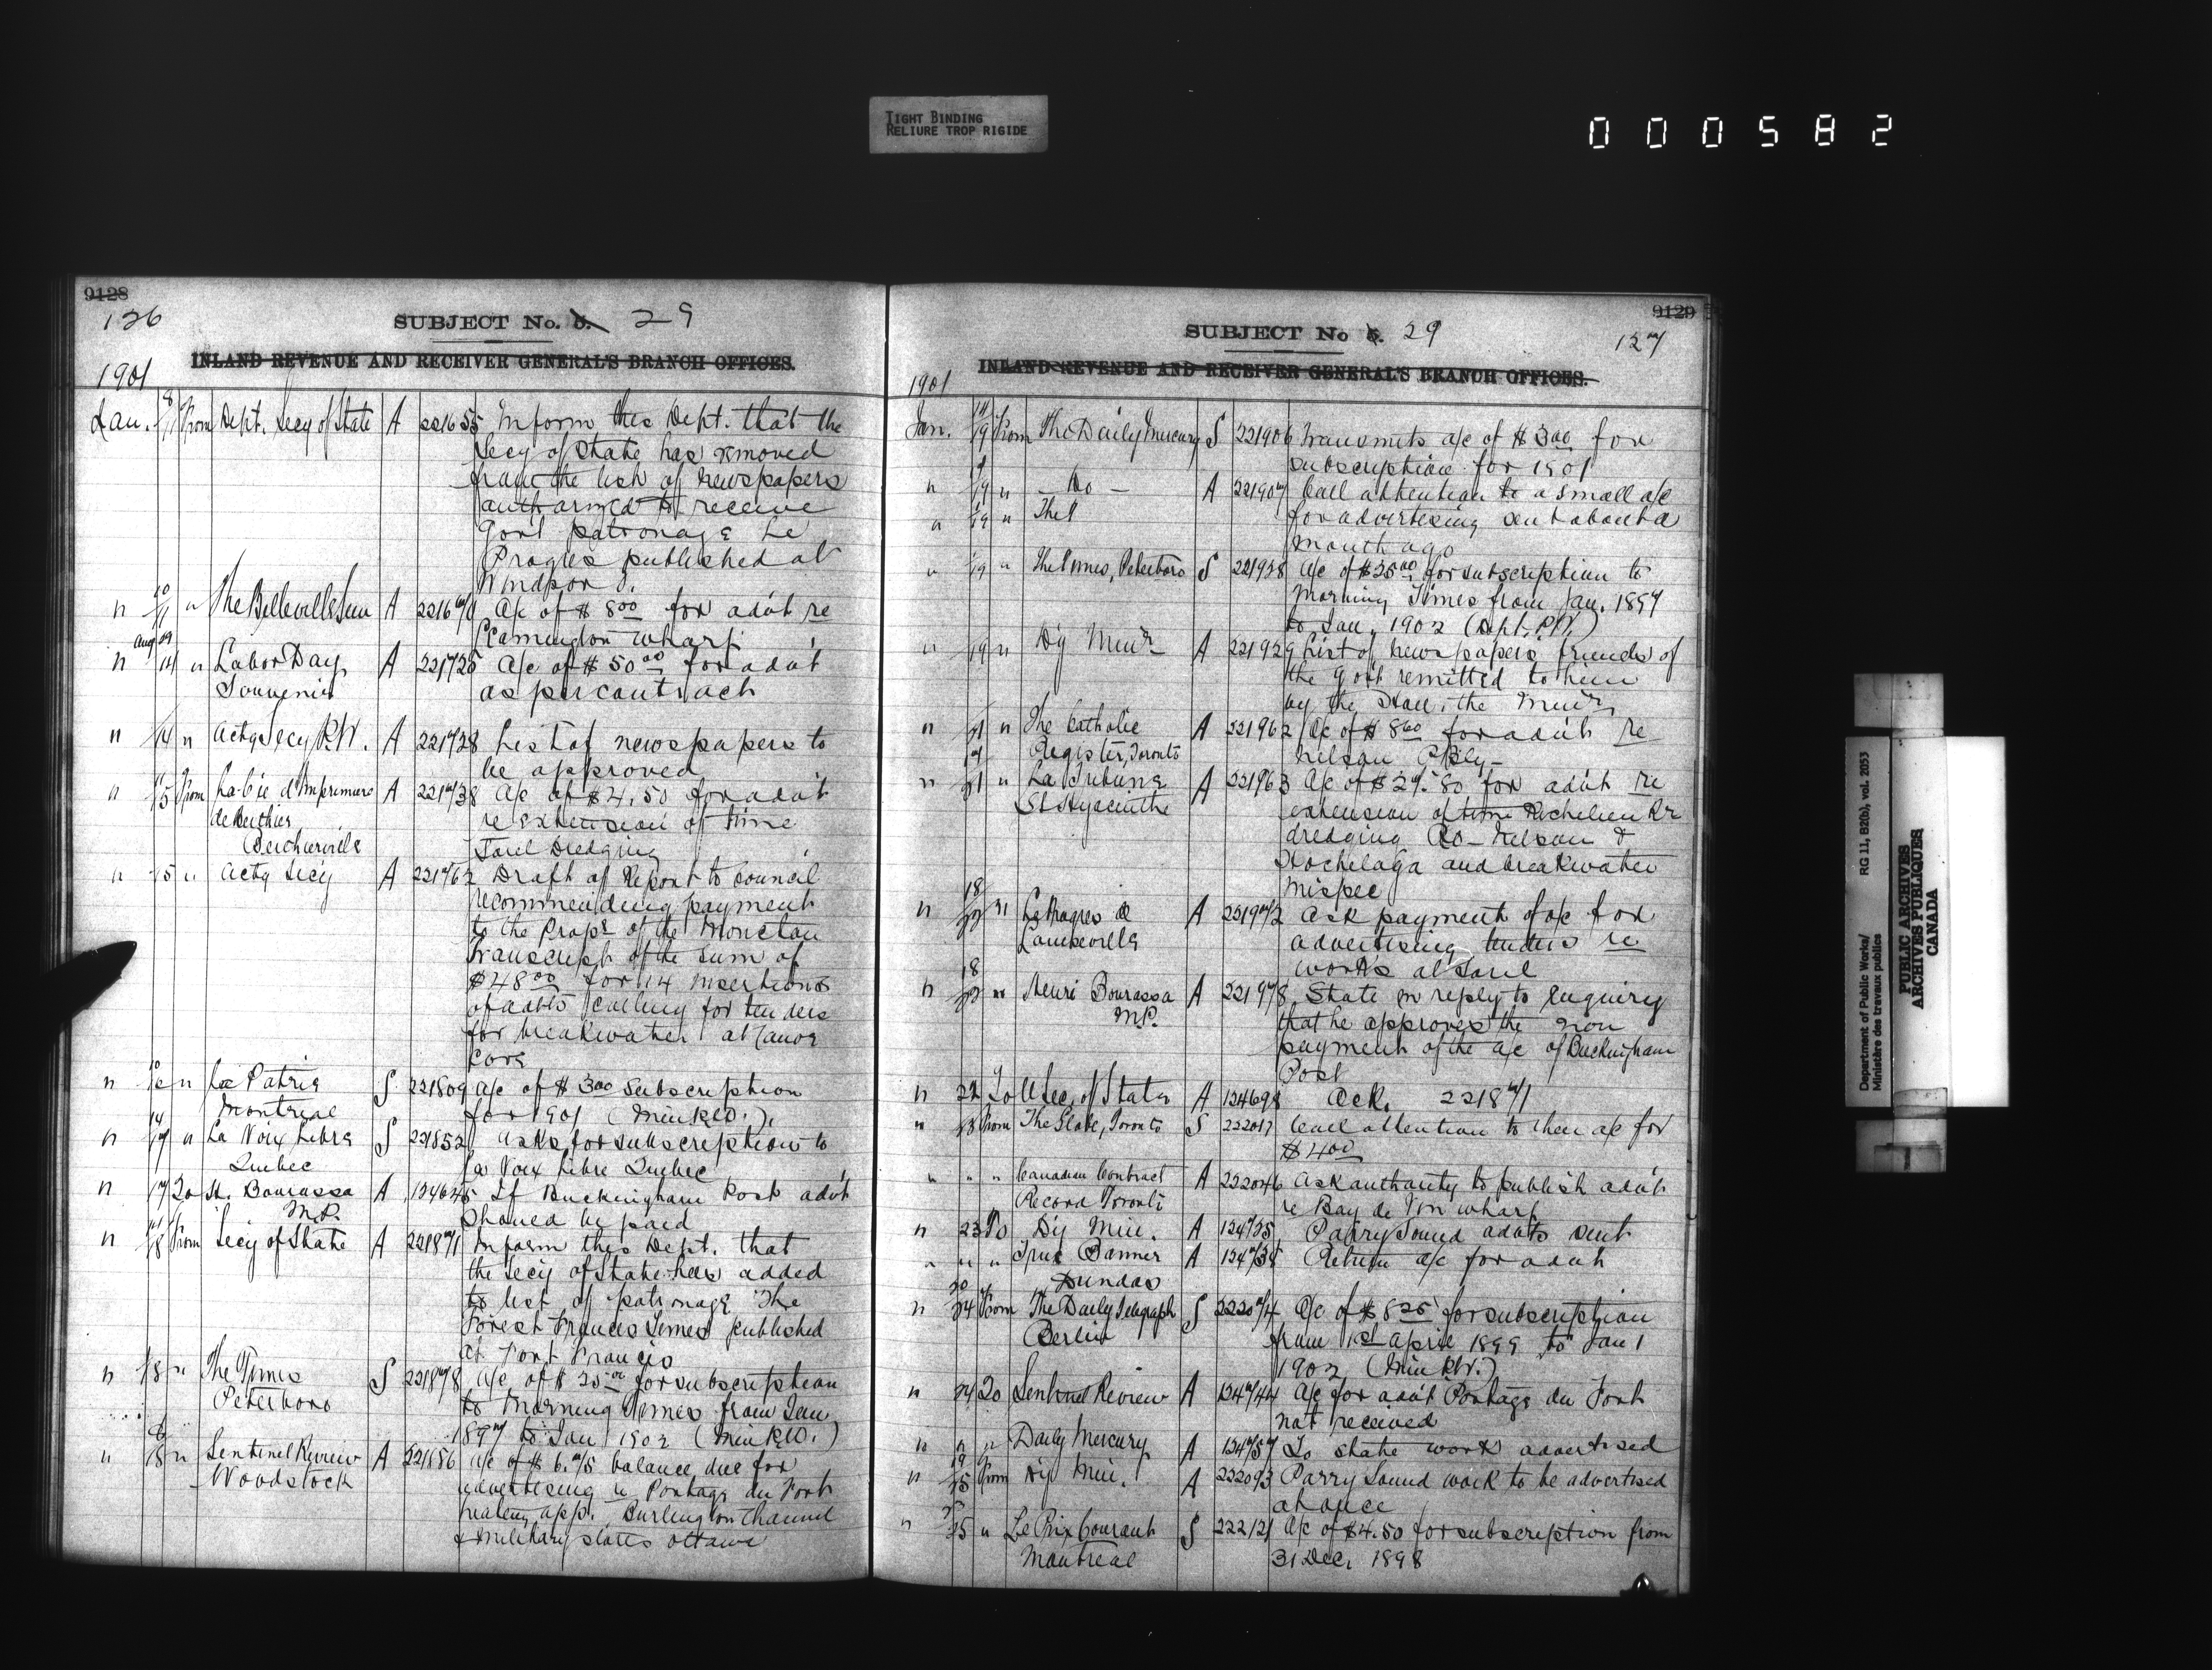 TIGHT BINDING
RELIURE TROP RIGIDE
000582
9128
126
SUBJECT No. 5. 29
INLAND REVENUE AND RECEIVER GENERAL'S BRANCH OFFICES.
1901
Jan. 8/11 From Dept. Secy of State A 221655 Inform this Dept. that the
Secy of State has removed
from the list of newspapers
authorized to receive
Gov't patronage Le
Progres published at
Windsor O.
" 10/11 " The Belleville Sun A 221670 A/c of $ 8.00 for advt re
Leamington wharf
" Aug 29/14 " Labor Day A 221725 A/c of $ 50.00 for advt
Souvenir as per contract
" 14 " Actg Secy P.W. A 221728 List of newspapers to
be approved
" 15 From La Cie d'Imprimerie A 221738 A/c of $4.50 for advt
de Berthier re extension of time
Berthierville Sorel Dredging
" 15 " Actg Secy A 221762 Draft of Report to Council
recommending payment
to the Propr of the Moncton
Transcript of the sum of
$48.00 for 14 insertions
of advts calling for tenders
for breakwater at
Cove
" " La Patrie S 221809 a/c of $ 3.00 subscription
Montreal for 1901 (Min P.W.)
" 14/17 " La Voix Libre S 221852 Asks for subscription to
Quebec La Voix Libre Quebec
" 17 To H. Bourassa A 134645 If Buckingham Post advt
M.P. should be paid
" 18 From Secy of State A 221871 Inform this Dept. that
the Secy of State has added
to list of patronage The
Forest Frances Times published
at Fort Francis
" 18 " The Times S 221878 A/c of $ 25.00 for subscription
Peterboro to Morning Times from Jan
1897 to Jan 1902 (Min P.W.)
" 18 " Sentinel Review A a/c of $ 6.75 balance due for
Woodstock advertising re Portage du Fort
heating app. Burlington Channel
& Military stores Ottawa
9129
127
SUBJECT No 5. 29
INLAND REVENUE AND RECEIVER GENERAL'S BRANCH OFFICES.
1901
Jan. 19 From The Daily Mercury S 221906 Transmits a/c of $ 3.00 for
subscription for 1901
" 19 " — Do — A 221907 Call attention to a small a/c
" 19 " The for advertising sent about a
month ago
" 19 " The Times, Peterboro S 221938 A/c of $25.00 for subscription to
Morning Times from Jan. 1897
to Jan. 1902 (Dept. P.W.)
" 19 " Dy Minr A 221929 List of newspapers friends of
the Gov't remitted to him
by the Hon. the Minr
" 21 " The Catholic A 221962 A/c of $ 8.60 for advt re
Register, Toronto Nelson P. Bly—
" 21 " La Tribune A 221963 A/c of $ 27.80 for advt re
St Hyacinthe extension of time Richelieu Rr
dredging Co — Nelson &
Hochelaga and breakwater
Mispec
" 18/22 " Le Progres de A 221972 Ask payment of a/c for
advertising tenders re
works at Sorel
" 18/22 " Henri Bourassa A 221978 State in reply to enquiry
M.P. that he approves the non
payment of the a/c of Buckingham
Post
" 22 To U Sec. of State A 134698 Ack. 221871
" 23 From The Globe, Toronto S 222017 Call attention to their a/c for
$ 4.00
" " " Canadian Contract A 222046 Ask authority to publish advt
Record Toronto re Bay du Vin wharf
" 23 To Dy Min. A 134735 Parry Sound advts sent
" " " True Banner A 134738 Return a/c for advt
Dundas
" 20/24 From The Daily Telegraph S 222074 A/c of $ 8.25 for subscription
Berlin from 1st April 1899 to Jan 1
1902 (Min P.W.)
" 24 To Sentinel Review A 134744 A/c for advt Portage du Fort
not received
" " " Daily Mercury A 134757 To state work advertised
" 19/25 From Dy Min. A 222093 Parry Sound work to be advertised
at once
" 25 " Le Prix Courant S 222121 A/c of $4.50 for subscription from
Montreal 31 Dec. 1898
Department of Public Works/
Ministère des travaux publics
RG 11, B2(b), vol. 2053
PUBLIC ARCHIVES
ARCHIVES PUBLIQUES
CANADA